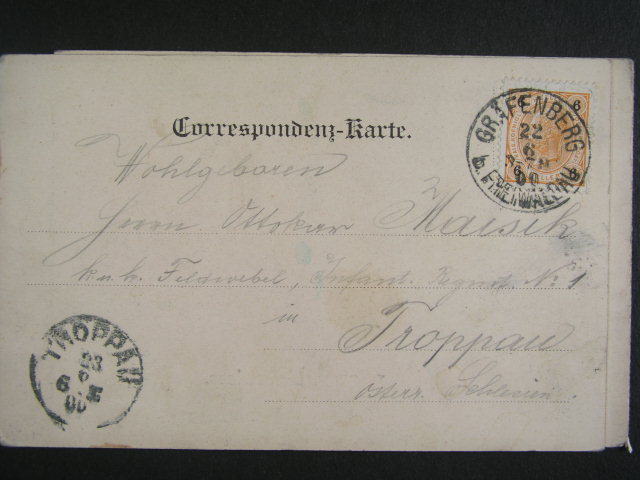 Correspondenz-Karte.
GRÄFENBERG
22
6
00
b. FREIWALDAU
6
6
Wohlgeboren
Herrn Ottokar Maisik
k.u.k. Feldwebel, Infant. Regmt № 1
in
Troppau
österr. Schlesien.
TROPPAU
23
6
6 E
00